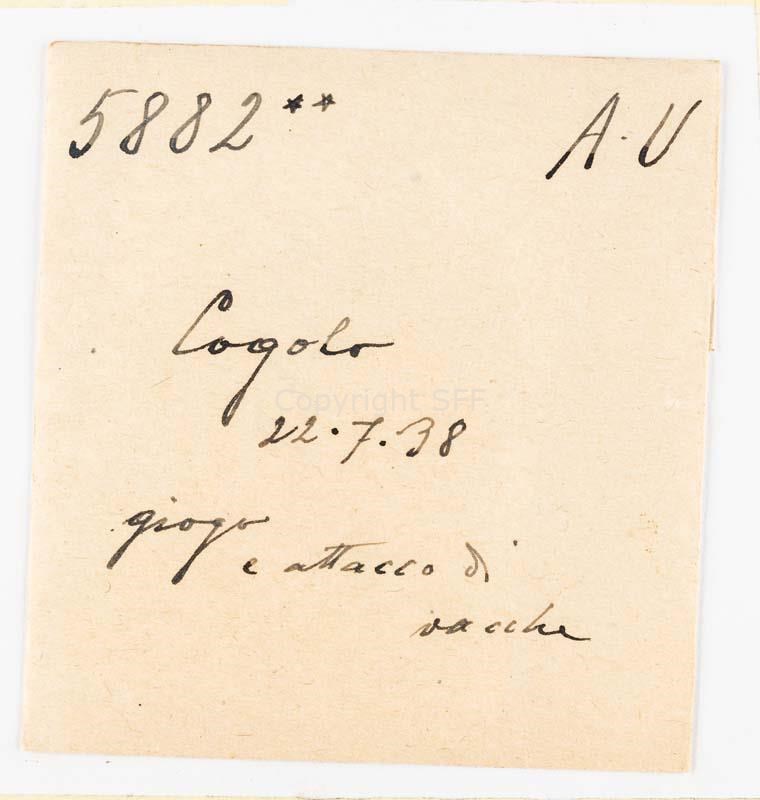 5882** A. U
Cogolo
Copyright SFF
22.7.38
giogo
e attacco di
vacche